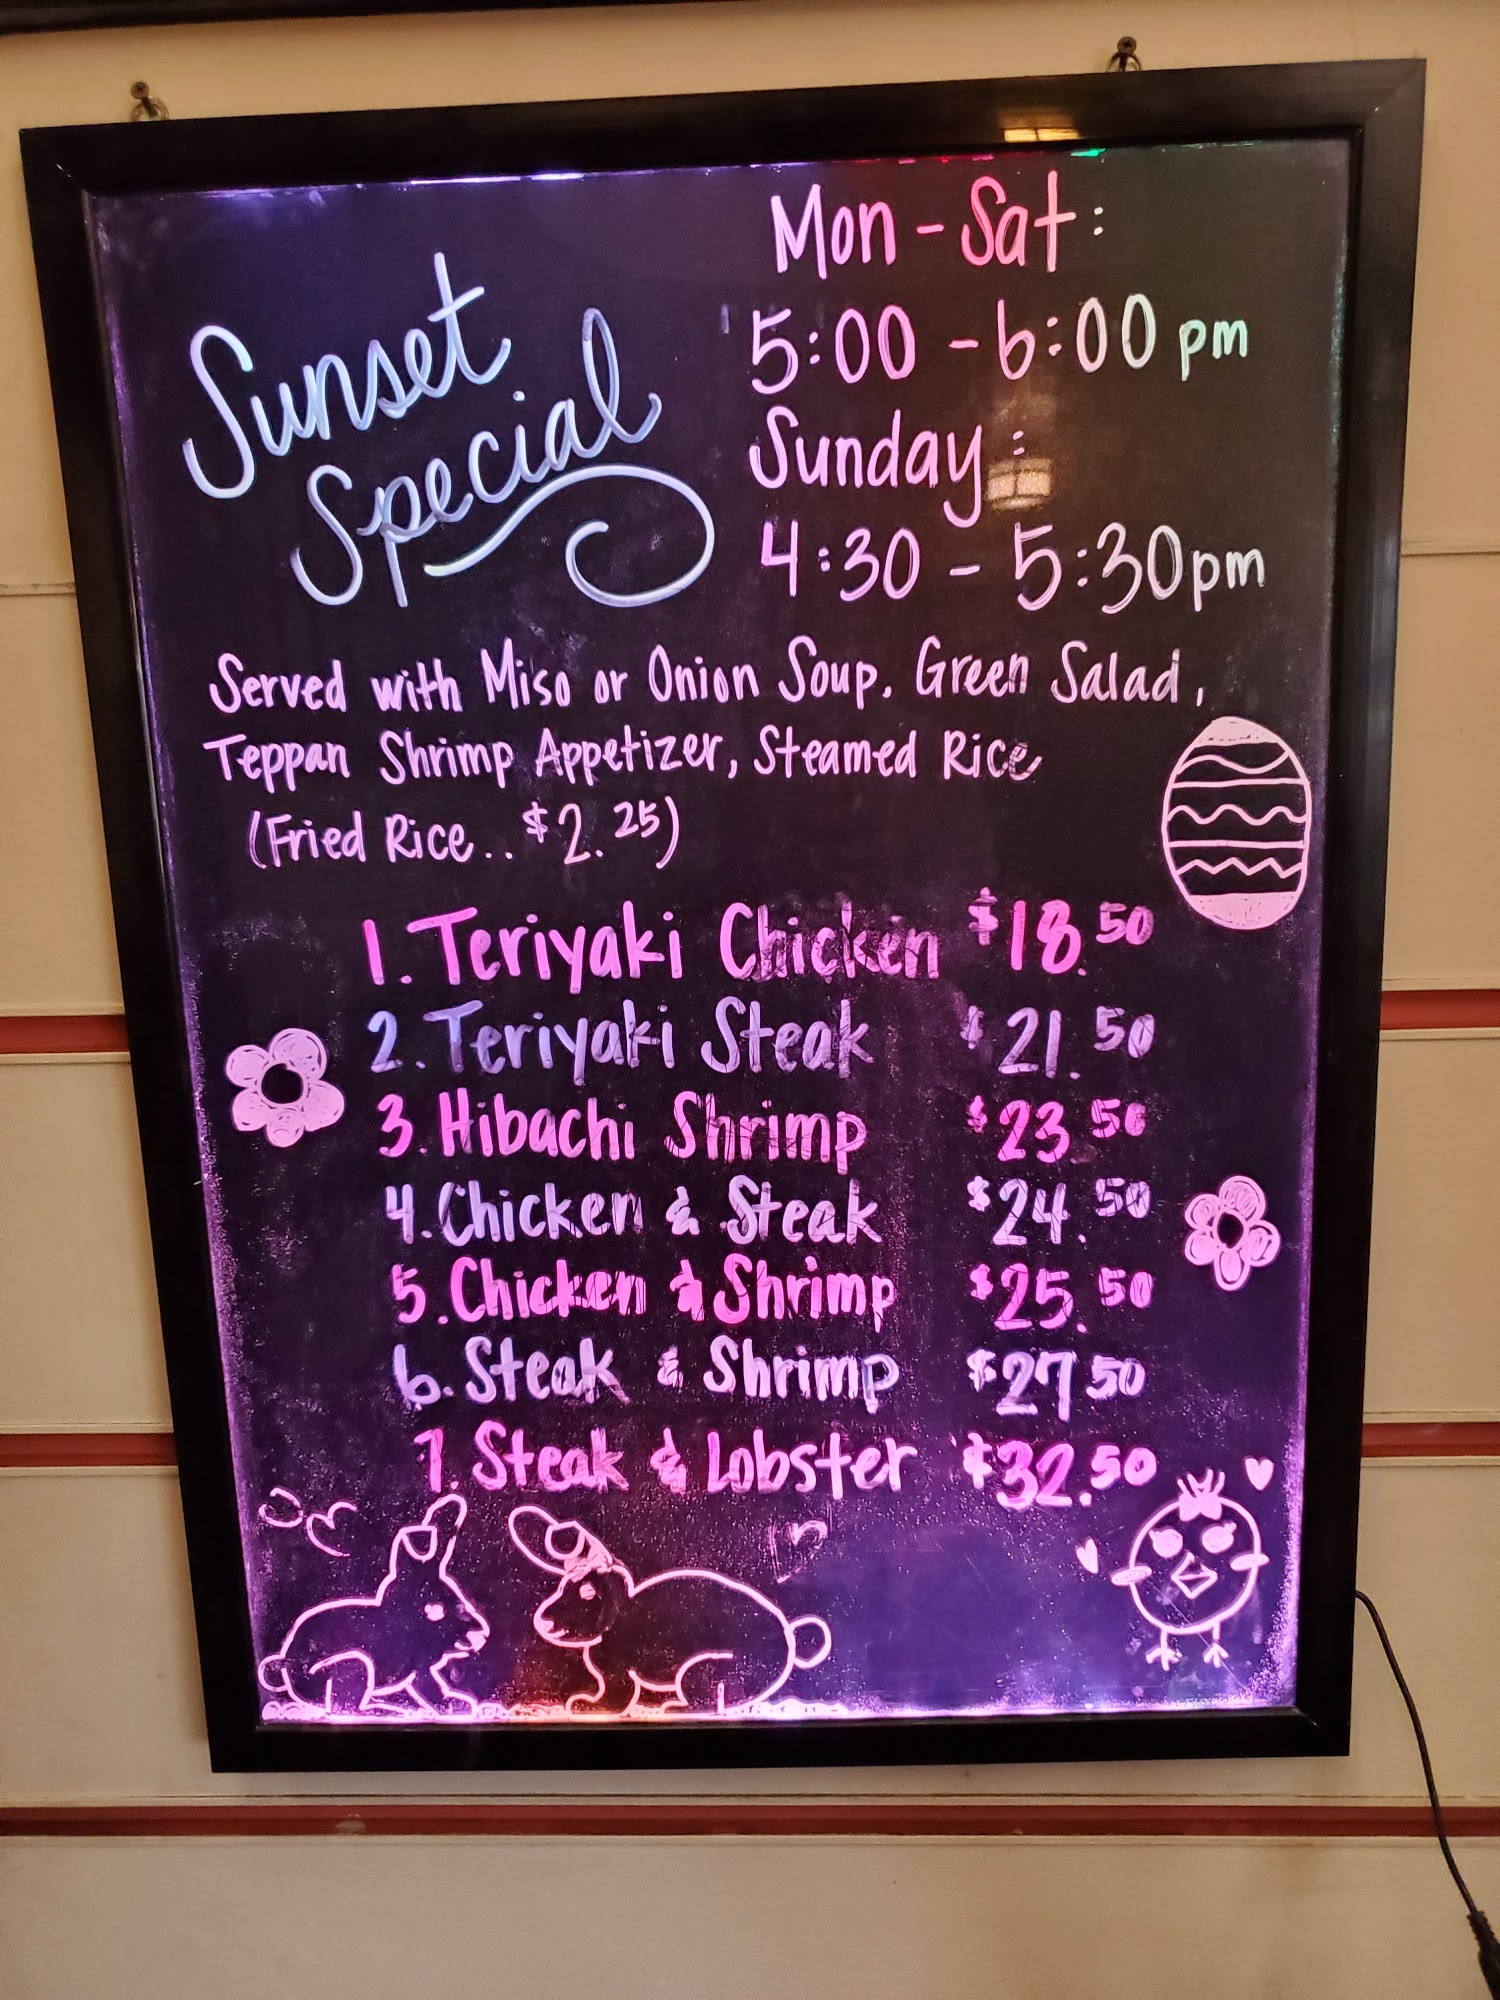 Sunset
Special
Mon - Sat:
5:00 - 6:00 pm
Sunday:
4:30 - 5:30pm
Served with Miso or Onion Soup, Green Salad,
Teppan Shrimp Appetizer, Steamed Rice
(Fried Rice.. $2.25)
1. Teriyaki Chicken $18.50
2. Teriyaki Steak $21.50
3. Hibachi Shrimp $23.50
4. Chicken & Steak $24.50
5. Chicken & Shrimp $25.50
6. Steak & Shrimp $27.50
7. Steak & Lobster $32.50